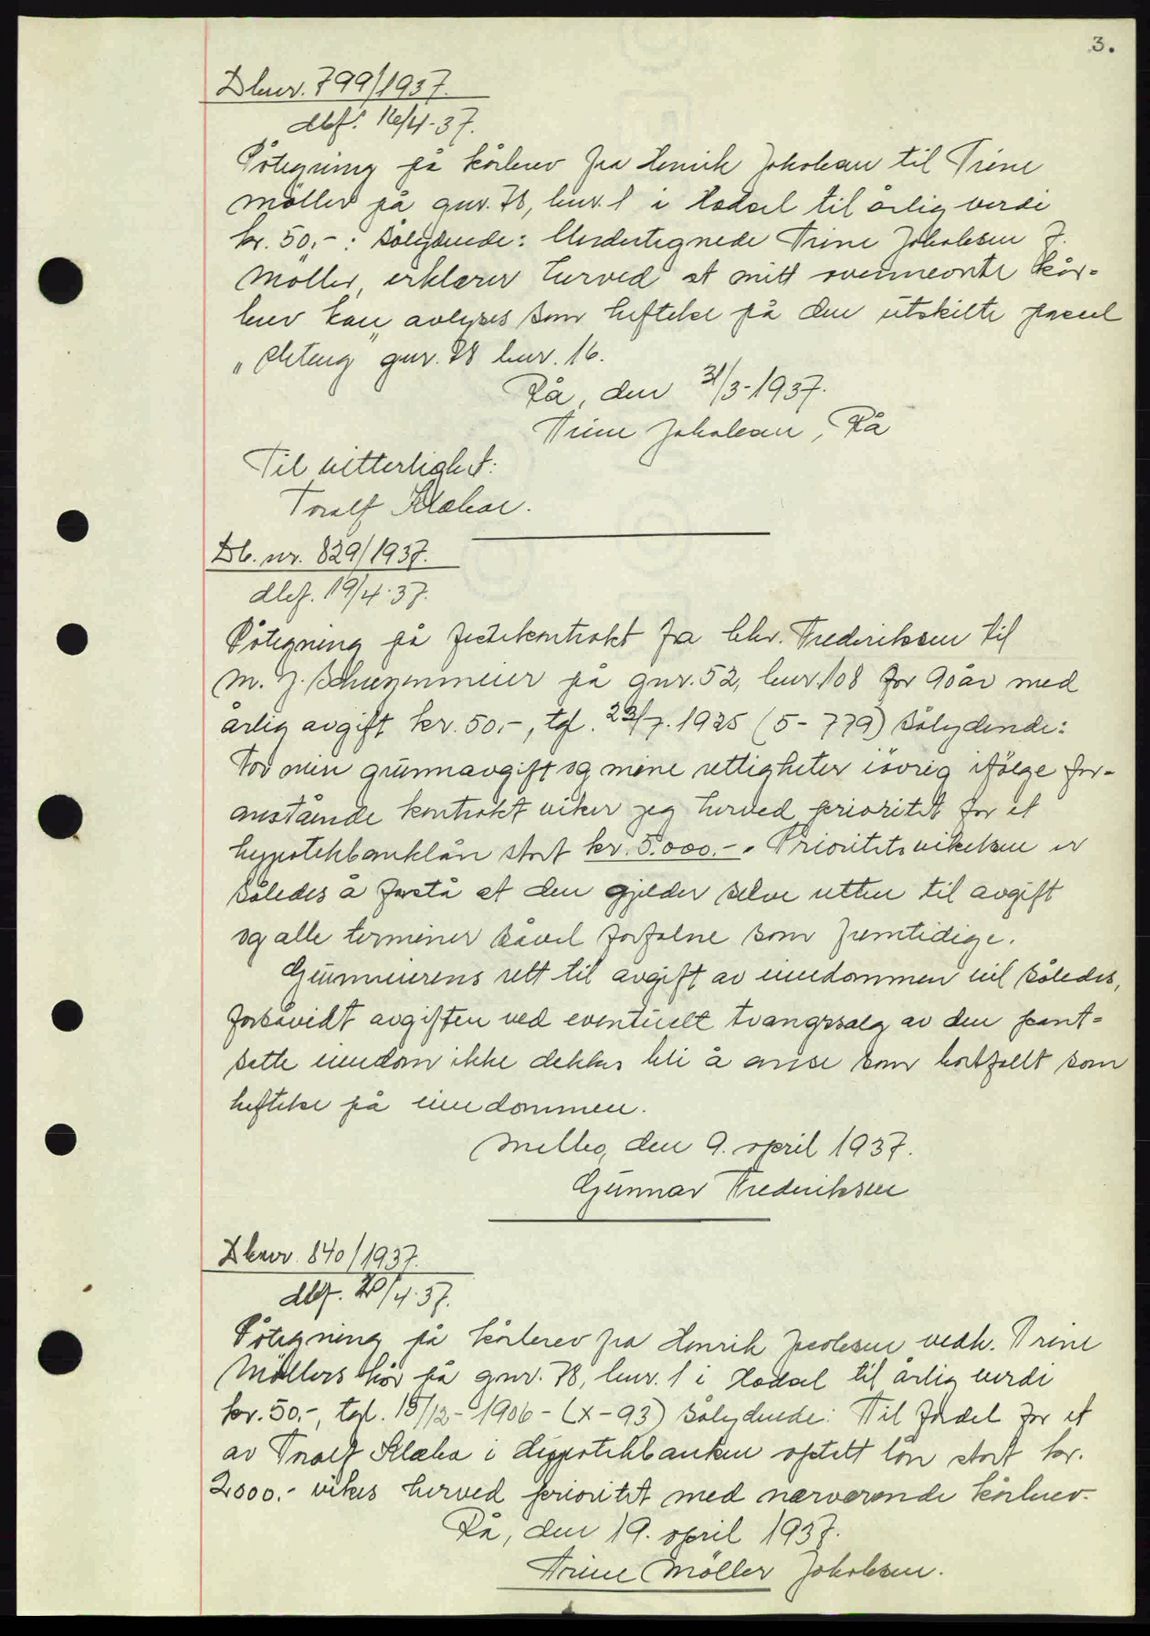 3.
Dbnr. 799/1937.
dbf. 16/4-37.
Påtegning på kårbrev fra Henrik Jakobsen til Trine
Möller på gnr. 78, bnr. 1 i Hadsel til årlig verdi
kr. 50,- : sålydende: Undertegnede Trine Jakobsen f.
Möller, erklærer herved at mitt ovennevnte kår-
brev kan avlyses som heftelse på den utskilte parsel
gnr. 78 bnr. 16.
Rå, den 31/3-1937.
Trine Jakobsen, Rå
Til vitterlighet:
Toralf Klæboe.
Db. nr. 829/1937.
dbf. 19/4-37.
Påtegning på festekontrakt fra Chr. Frederiksen til
M. J. på gnr. 52, bnr. 108 for 90 år med
årlig avgift kr. 50,-, tgl. 22/7. 1925 (5-779) sålydende:
For min grunnavgift og mine rettigheter iövrig ifölge for-
anstående kontrakt viker jeg herved prioritet for et
hypotekbanklån stort kr. 5.000.-. Prioritetsvikelsen er
således å forstå at den gjelder selve retten til avgift
og alle terminer såvel forfalne som fremtidige.
Grunneierens rett til avgift av eiendommen vil således,
forsåvidt avgiften ved eventuelt tvangssalg av den pant-
satte eiendom ikke dekkes bli å anse som bortfallt som
heftelse på eiendommen.
Melbo, den 9. april 1937.
Gunnar Frederiksen
Dbnr. 840/1937.
dbf. 20/4-37.
Påtegning på kårbrev fra Henrik Jacobsen vedk. Trine
Möllers kår på gnr. 78, bnr. 1 i Hadsel til årlig verdi
kr. 50.-, tgl. 15/12-1906-(X-93) sålydende: Til fordel for et
av Toralf Klæbo i Hypotekbanken optatt lån stort kr.
2000.- vikes herved prioritet med nærværende kårbrev.
Rå, den 19. april 1937.
Trine Möller Jakobsen.